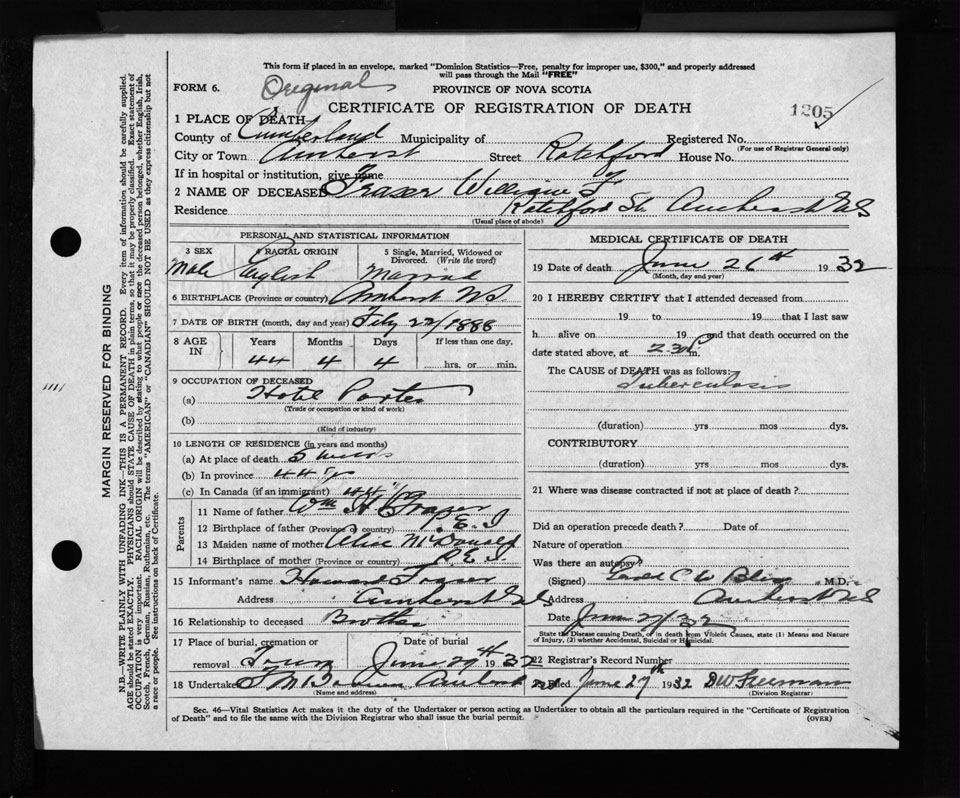 This form if placed in an envelope, marked "Dominion Statistics—Free, penalty for improper use, $300," and properly addressed
will pass through the Mail "FREE"
FORM 6. Original PROVINCE OF NOVA SCOTIA
CERTIFICATE OF REGISTRATION OF DEATH 1205
1 PLACE OF DEATH
County of Cumberland Municipality of Registered No.
(For use of Registrar General only)
City or Town Amherst Street Ratchford House No.
If in hospital or institution, give name
2 NAME OF DECEASED Fraser William F
Residence Ratchford St. Amherst N S
(Usual place of abode)
PERSONAL AND STATISTICAL INFORMATION
3 SEX 4 RACIAL ORIGIN 5 Single, Married, Widowed or
Divorced. (Write the word)
Male English Married
6 BIRTHPLACE (Province or country) Amherst N.S.
7 DATE OF BIRTH (month, day and year) Feby 22/1888
8 AGE IN Years Months Days If less than one day,
44 4 4 hrs. or min.
9 OCCUPATION OF DECEASED
(a) Hotel Porter
(Trade or occupation or kind of work)
(b)
(Kind of industry)
10 LENGTH OF RESIDENCE (in years and months)
(a) At place of death 5
(b) In province 44 yrs
(c) In Canada (if an immigrant) 44
Parents
11 Name of father Wm H Fraser
12 Birthplace of father (Province or country) P.E.I
13 Maiden name of mother Alice McDonald
14 Birthplace of mother (Province or country) P.E.I
15 Informant's name Howard Fraser
Address Amherst N S
16 Relationship to deceased Brother
17 Place of burial, cremation or Date of burial
removal June 27th 1932
18 Undertaker Amherst
(Name and address)
MEDICAL CERTIFICATE OF DEATH
19 Date of death June 26th 1932
(Month, day and year)
20 I HEREBY CERTIFY that I attended deceased from
19 to 19 that I last saw
h alive on 19 and that death occurred on the
date stated above, at 2.30 P m.
The CAUSE of DEATH was as follows:
Tuberculosis
(duration) yrs mos dys.
CONTRIBUTORY
(duration) yrs mos dys.
21 Where was disease contracted if not at place of death?
Did an operation precede death? Date of
Nature of operation
Was there an autopsy?
(Signed) C W Bliss M.D.
Address Amherst N S
Date June 32
State the Disease causing Death, or in death from Violent Causes, state (1) Means and Nature
of Injury, (2) whether Accidental, Suicidal or Homicidal.
22 Registrar's Record Number
23 Filed June 27th 1932 D W Freeman
(Division Registrar)
Sec. 46—Vital Statistics Act makes it the duty of the Undertaker or person acting as Undertaker to obtain all the particulars required in the "Certificate of Registration
of Death" and to file the same with the Division Registrar who shall issue the burial permit. (OVER)
MARGIN RESERVED FOR BINDING
N.B.—WRITE PLAINLY WITH UNFADING INK—THIS IS A PERMANENT RECORD. Every item of information should be carefully supplied.
AGE should be stated EXACTLY. PHYSICIANS should STATE CAUSE OF DEATH in plain terms, so that it may be properly classified. Exact statement of
OCCUPATION is very important. RACIAL ORIGIN will be described by stating to what people or race the deceased person belonged, whether English, Irish,
Scotch, French, German, Russian, Ruthenian, etc. The terms "AMERICAN" or "CANADIAN" SHOULD NOT BE USED as they express citizenship but not
a race or people. See instructions on back of Certificate.